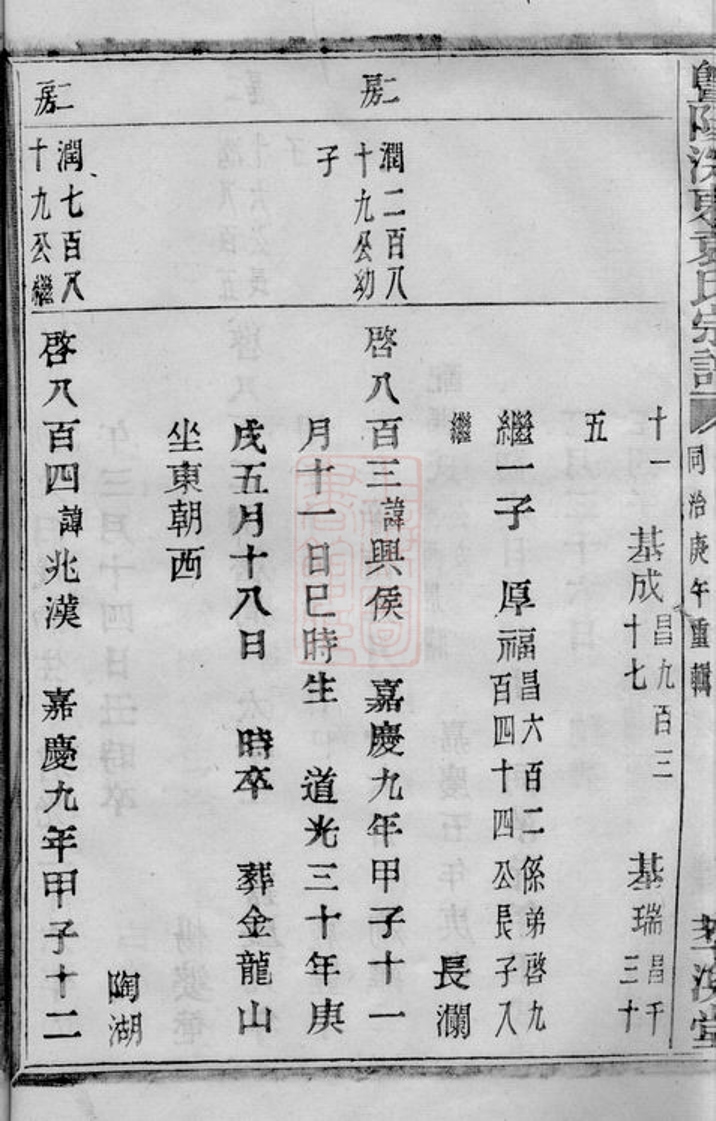 暨陽浣東袁氏宗譜 同治庚午重輯
十一 基成昌九百三十七 基瑞昌千三十
五
繼一子 厚福昌六百二係弟啓九百四十四公長子入
繼 長瀾
二房
潤二百八十九公幼
子
啓八百三諱興侯 嘉慶九年甲子十一
月十一日巳時生 道光三十年庚
戌五月十八日 時卒 葬金龍山
坐東朝西
陶湖
二房
潤七百八十九公繼
啓八百四諱兆漢 嘉慶九年甲子十二